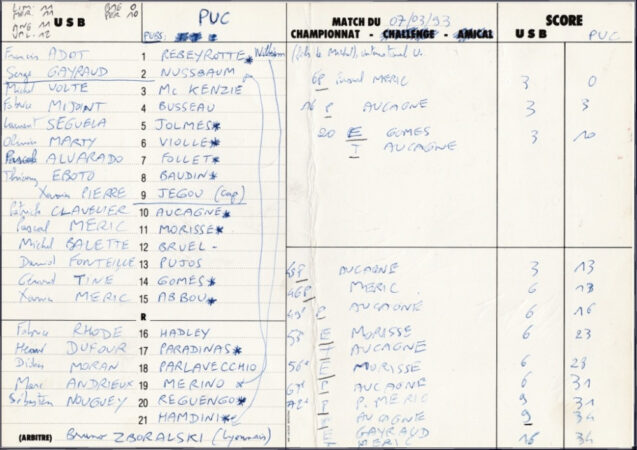 LIM: 11 BAE 0
MER: 11 PER 10
ANG 11
VAL: 12
USB PUC
PUBS:
Francis ADOT 1 REBEYROTTE* William
Serge GAYRAUD 2 NUSSBAUM
Michel VOLTE 3 Mc KENZIE
Fabrice MIJOINT 4 BUSSEAU
Laurent SEGUELA 5 JOLMES*
Olivier MARTY 6 VIOLLE*
Pascale ALVARADO 7 FOLLET*
Thierry EBOTO 8 BAUDIN*
Xavier PIERRE 9 JEGOU (Cap)
Patrick CLAVELIER 10 AUCAGNE*
Pascal MERIC 11 MORISSE*
Michel BALETTE 12 BRUEL -
Daniel FONTEILLE 13 PUJOS
Gérard TINE 14 GOMES*
Xavier MERIC 15 ABBOU*
R
Fabrice RHODE 16 HADLEY
Hervé DUFOUR 17 PARADINAS*
Didier MORAN 18 PARLAVECCHIO
Marc ANDRIEUX 19 MERINO *
Sébastien NOUGUEY 20 REGUENGO*
21 HAMDINI*
(ARBITRE) Bruno ZBORALSKI (Lyonnais)
MATCH DU 07/03/93
CHAMPIONNAT - CHALLENGE - AMICAL
SCORE
USB PUC
6 P MERIC 3 0
16 P AUCAGNE 3 3
20 E GOMES 3 10
T AUCAGNE
P AUCAGNE 3 13
46 P MERIC 6 13
P AUCAGNE 6 16
53e E MORISSE 6 23
T AUCAGNE
56e E MORISSE 6 28
67e P AUCAGNE 6 31
72e P P. MERIC 9 31
P AUCAGNE 9 34
E GAYRAUD 16 34
T MERIC